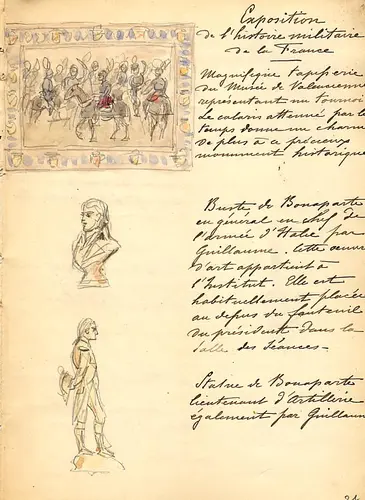 Exposition
de l'histoire militaire
de la France
Magnifique tapisserie
du Musée de Valenciennes
représentant un tournoi
Le coloris atténué par le
temps donne un charme
de plus à ce précieux
monument historique
Buste de Bonaparte
en général en chef de
l'armée d'Italie par
Guillaume. Cette œuvre
d'art appartient à
l'Institut. Elle est
habituellement placée
au depus du fauteuil
du président dans la
salle des séances -
Statue de Bonaparte
lieutenant d'artillerie
également par Guillaume